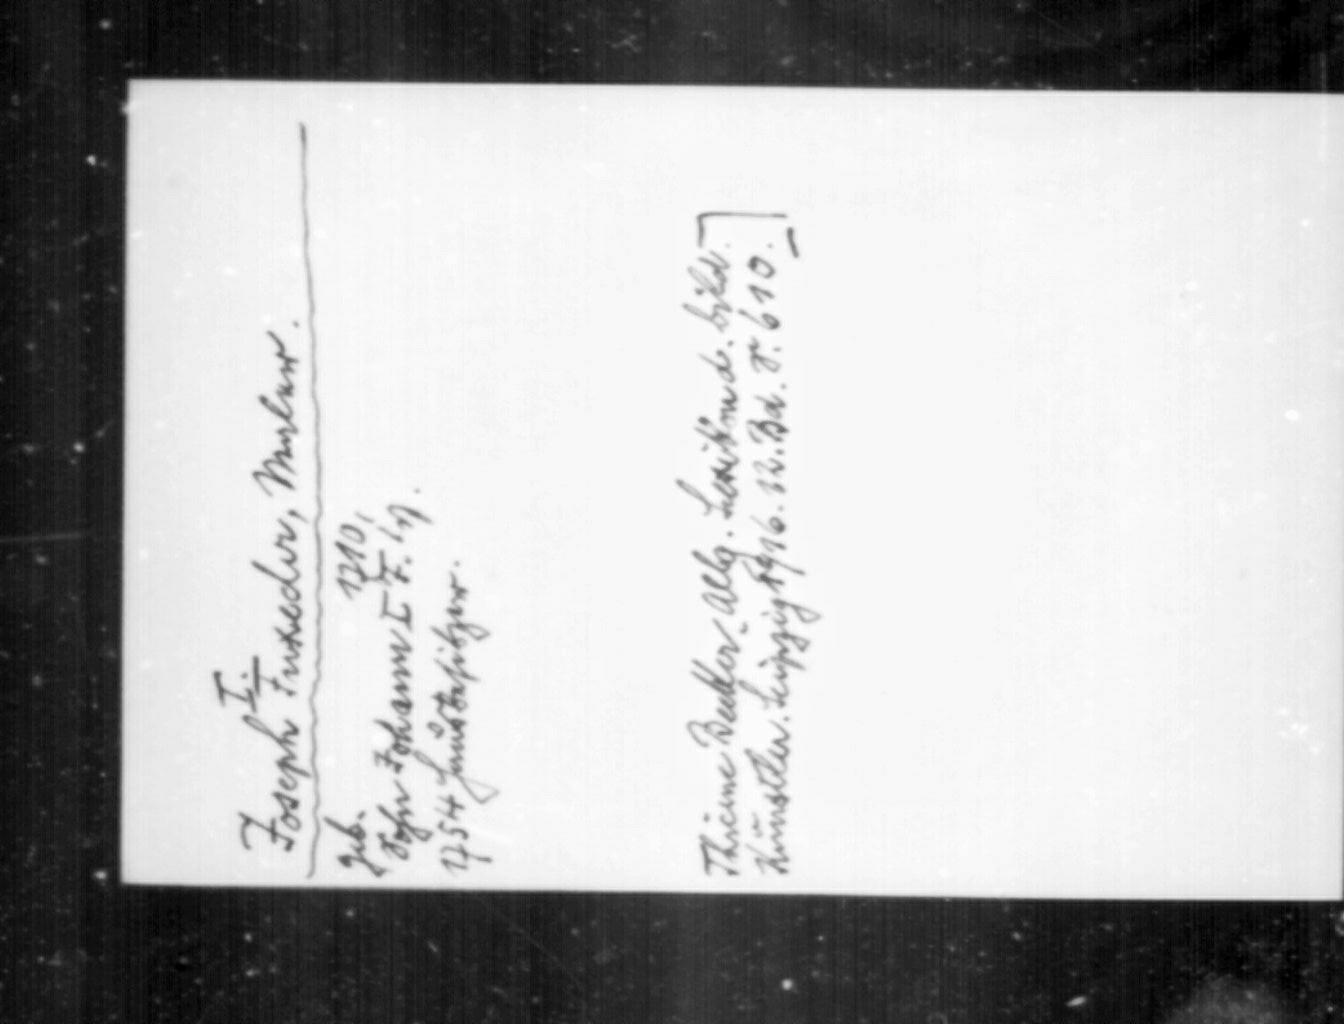 I.
Joseph Fuxeder, Maler.
geb. 1710,
Sohn Johann I F.
1754 Hausbesitzer.
Thieme Becker: Allg. Lexikon d. bild.
Künstler. Leipzig 1916. 12. Bd. S. 610.